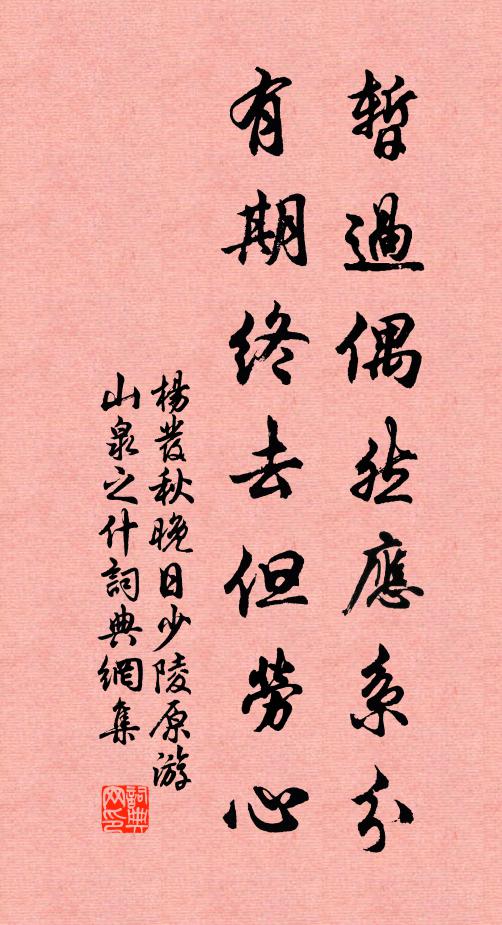 暫過偶然應系分
有期終去但勞心
楊發秋晚日少陵原游
山泉之什詞典網集
詞典網印